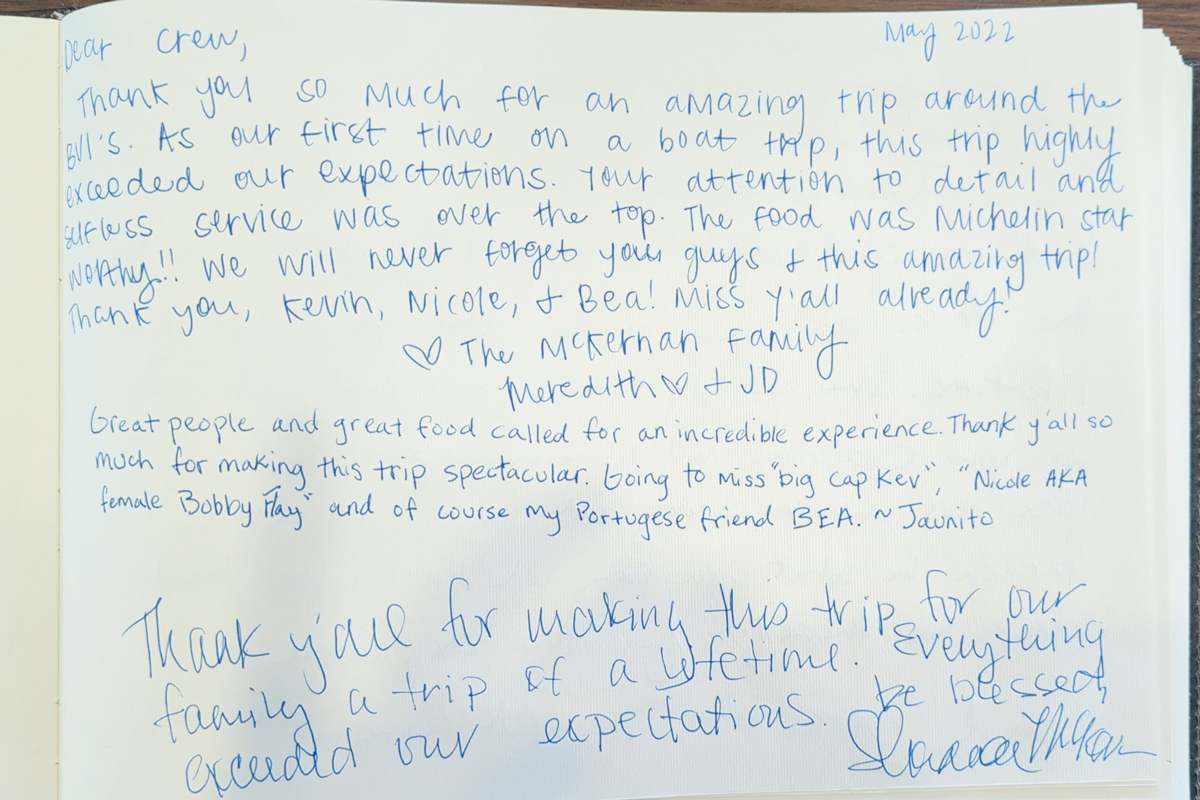 May 2022
Dear Crew,
Thank you so much for an amazing trip around the
BVI's. As our first time on a boat trip, this trip highly
exceeded our expectations. Your attention to detail and
selfless service was over the top. The food was Michelin star
worthy!! We will never forget you guys + this amazing trip!
Thank you, Kevin, Nicole, + Bea! Miss y'all already!
♡ The McKernan Family
Meredith ♡ + JD
Great people and great food called for an incredible experience. Thank y'all so
much for making this trip spectacular. Going to miss "big cap Kev", "Nicole AKA
female Bobby Flay" and of course my Portugese friend BEA. ~ Jaunito
Thank y'all for making this trip for our
family a trip of a lifetime. Everything
exceeded our expectations. be blessed,